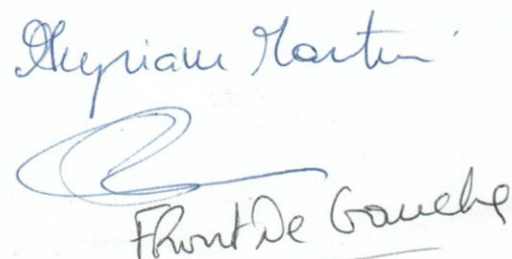 Myriam Martin
Front De Gauche